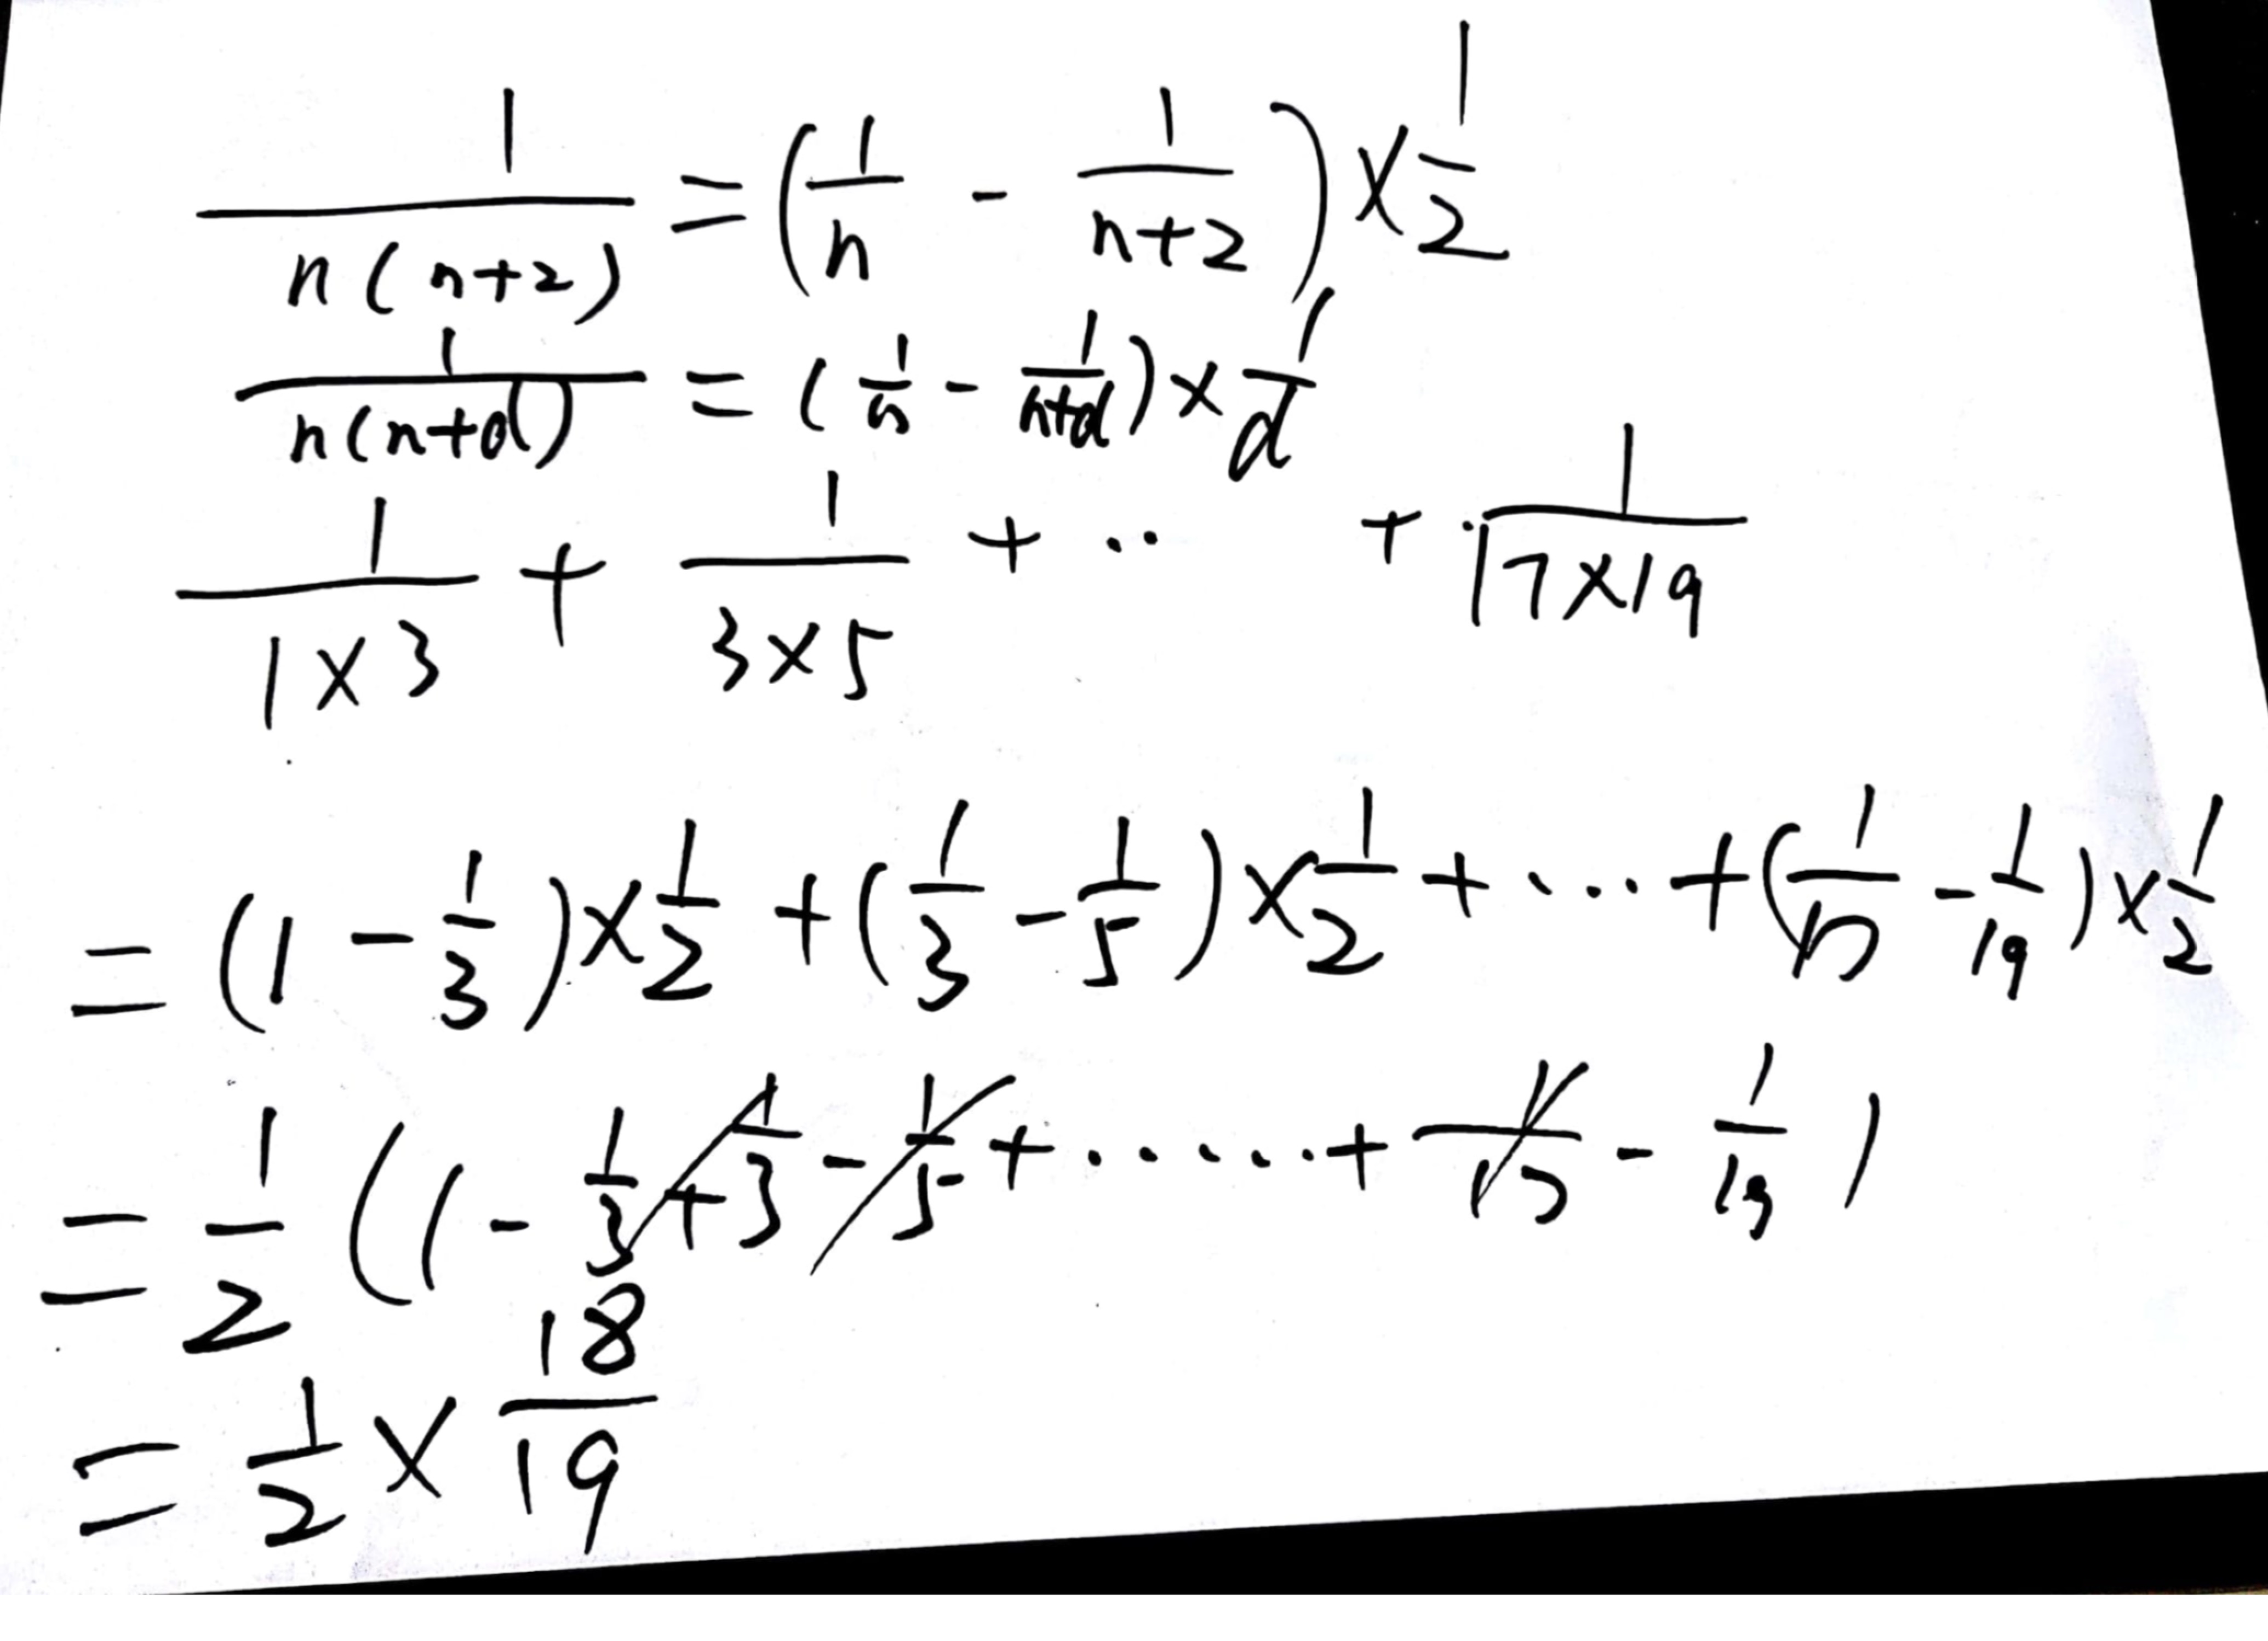 1/(n(n+2)) = (1/n - 1/(n+2)) × 1/2
1/(n(n+d)) = (1/n - 1/(n+d)) × 1/d
1/(1×3) + 1/(3×5) + ·· + 1/(17×19)
= (1 - 1/3) × 1/2 + (1/3 - 1/5) × 1/2 + ··· + (1/17 - 1/19) × 1/2
= 1/2 (1 - 1/3 + 1/3 - 1/5 + ······ + 1/17 - 1/19)
= 1/2 × 18/19